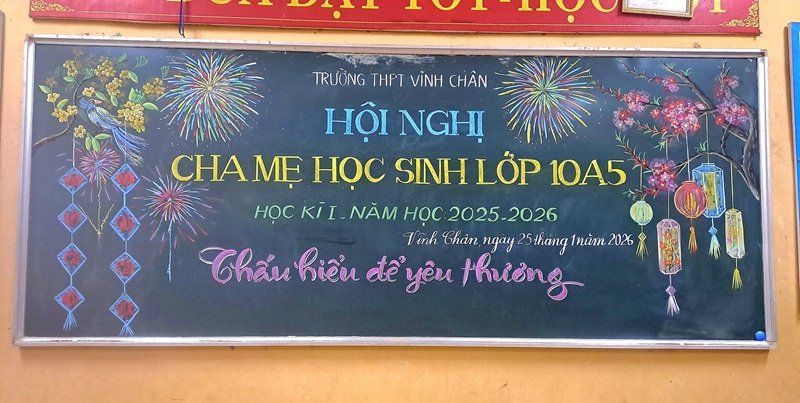 DẠY TỐT-HỌC T
TRƯỜNG THPT VĨNH CHÂN
HỘI NGHỊ
CHA MẸ HỌC SINH LỚP 10A5
HỌC KÌ I - NĂM HỌC 2025-2026
Vĩnh Chân, ngày 25 tháng 1 năm 2026
Thấu hiểu để yêu thương